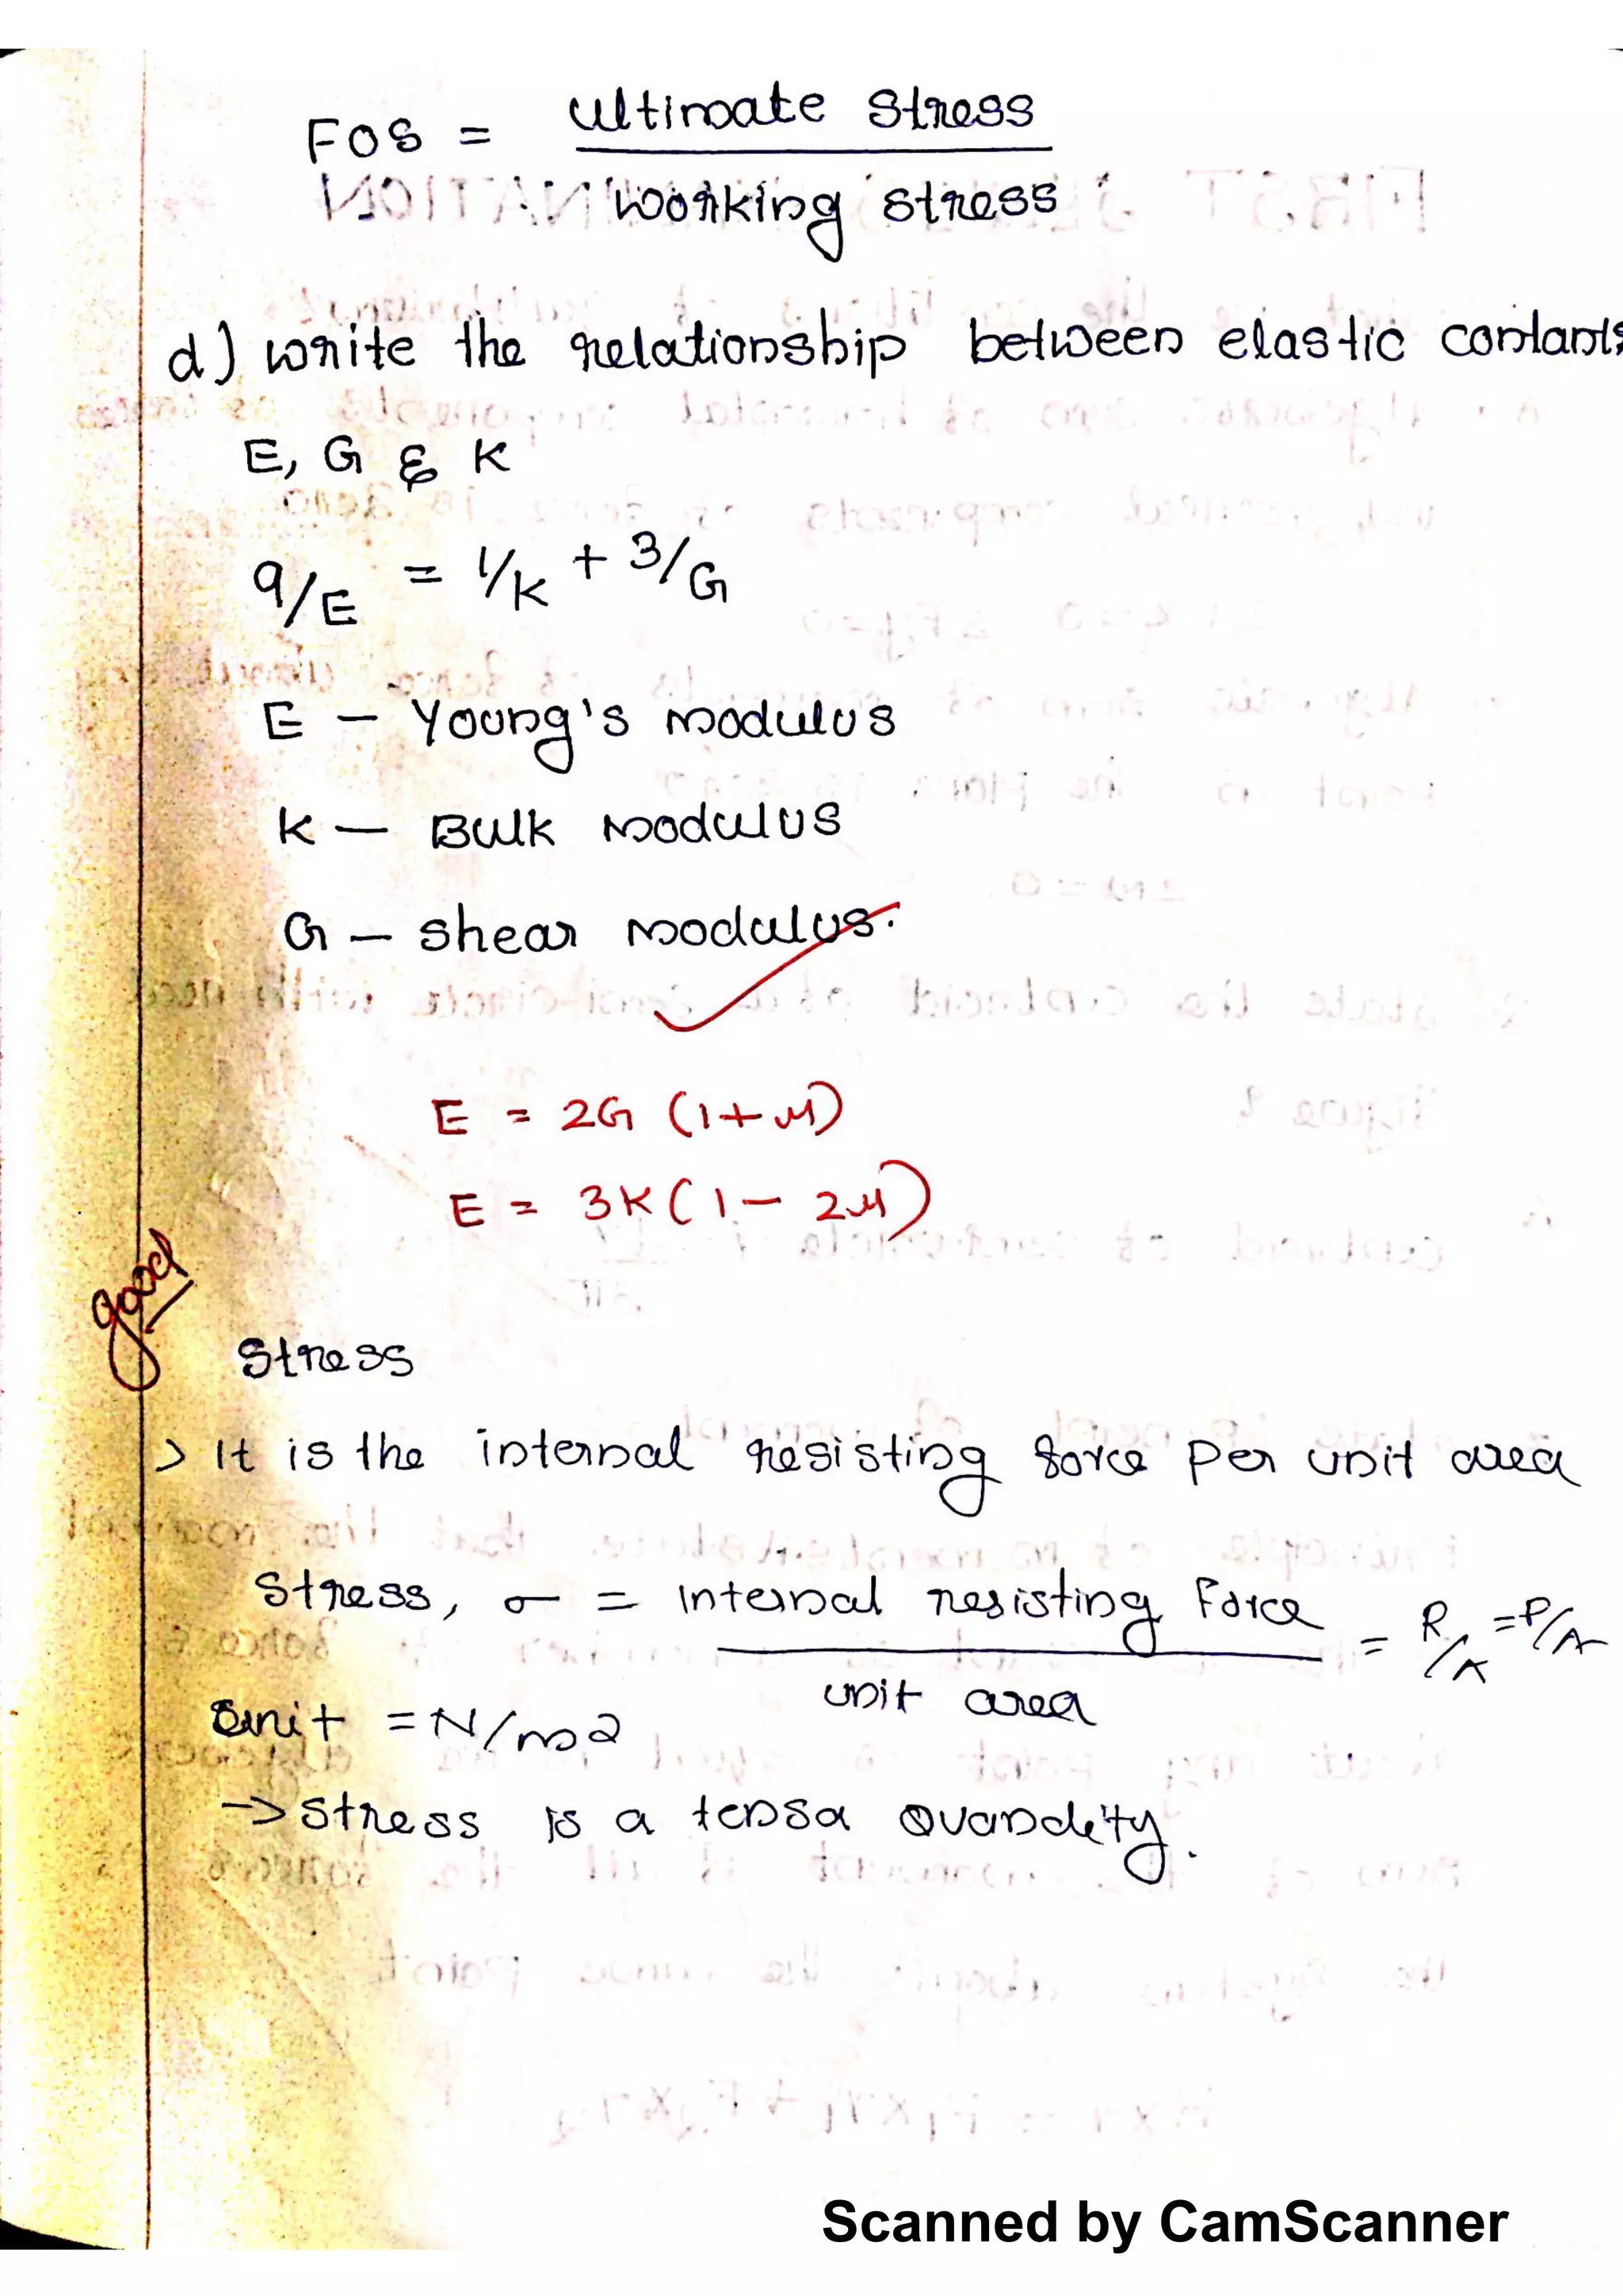 FOS = ultimate stress
working stress
d) write the relationship between elastic contants
E, G & K
9/E = 1/K + 3/G
E – Young's modulus
K – Bulk modulus
G – shear modulus.
E = 2G (1+μ)
E = 3K (1 – 2μ)
good
Stress
> It is the internal resisting force per unit area
Stress, σ = Internal resisting Force = R/A = P/A
unit area
unit = N/m2
-> stress is a tensa Quandity.
Scanned by CamScanner